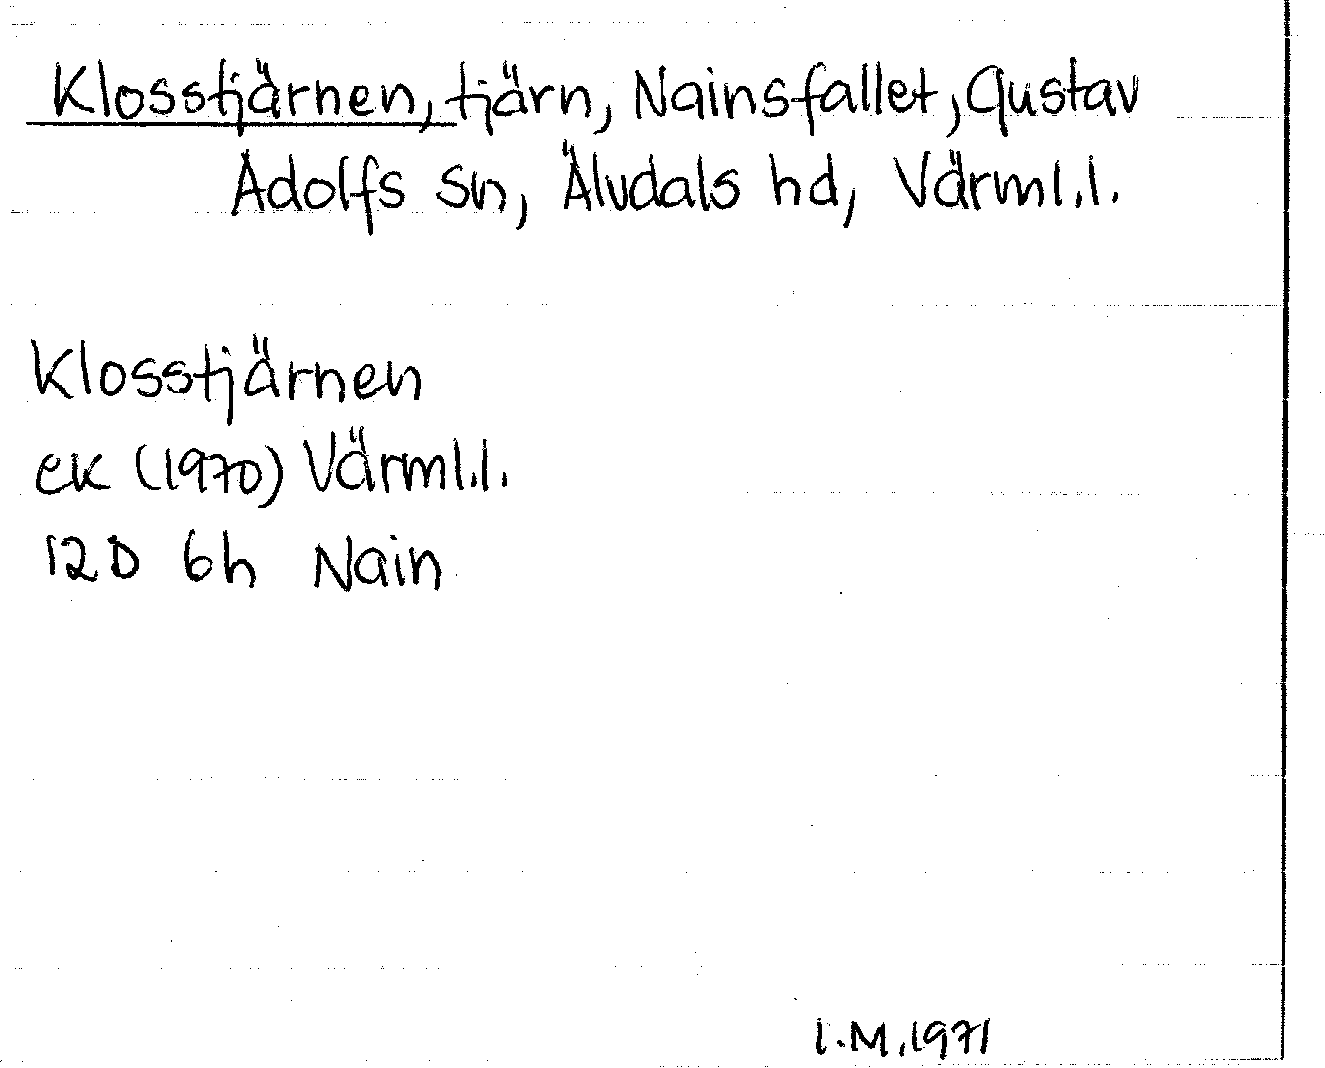 Klosstjärnen, tjärn, Nainsfallet, Gustav
Adolfs sn, Älvdals hd, Värml.l.
Klosstjärnen
ek (1970) Värml.l.
12D 6h Nain
I.M. 1971